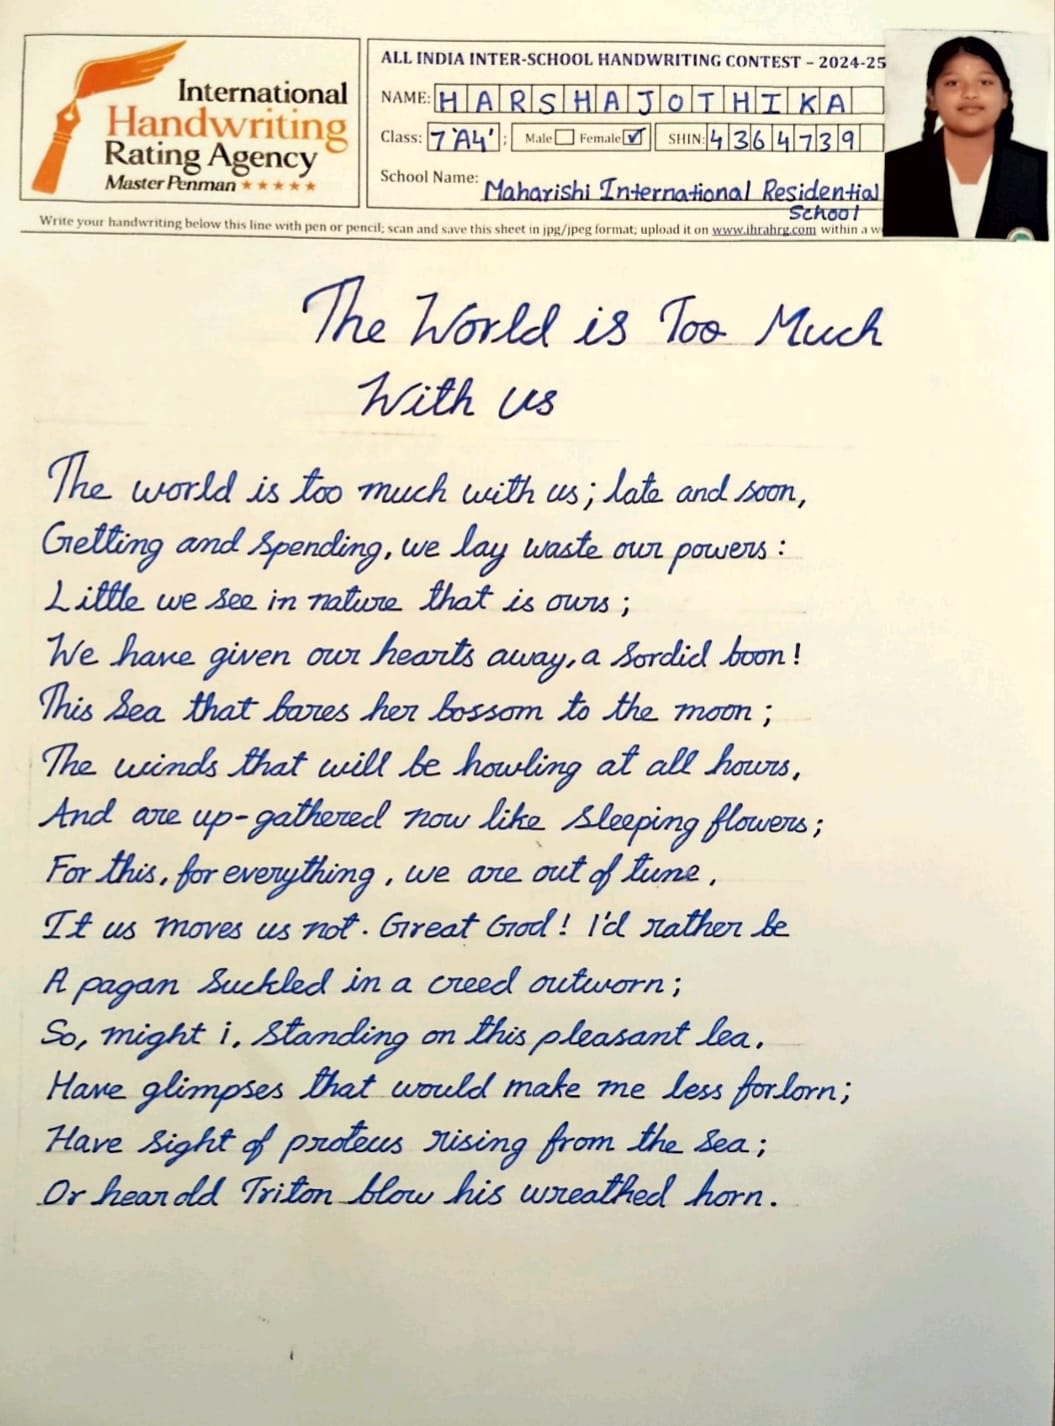 International
Handwriting
Rating Agency
Master Penman ★★★★★
ALL INDIA INTER-SCHOOL HANDWRITING CONTEST – 2024-25
NAME: HARSHAJOTHIKA
Class: 7 'A4' ; Male Female ✓ SHIN: 4364739
School Name: Maharishi International Residential
School
Write your handwriting below this line with pen or pencil; scan and save this sheet in jpg/jpeg format; upload it on www.ihrahrg.com within a
The World is Too Much
With us
The world is too much with us; late and soon,
Getting and spending, we lay waste our powers:
Little we see in nature that is ours;
We have given our hearts away, a sordid boon!
This Sea that bares her bossom to the moon;
The winds that will be howling at all hours,
And are up-gathered now like sleeping flowers;
For this, for everything, we are out of tune,
It us moves us not. Great God! I'd rather be
A pagan suckled in a creed outworn;
So, might i, standing on this pleasant lea,
Have glimpses that would make me less forlorn;
Have sight of proteus rising from the sea;
Or hear old Triton blow his wreathed horn.